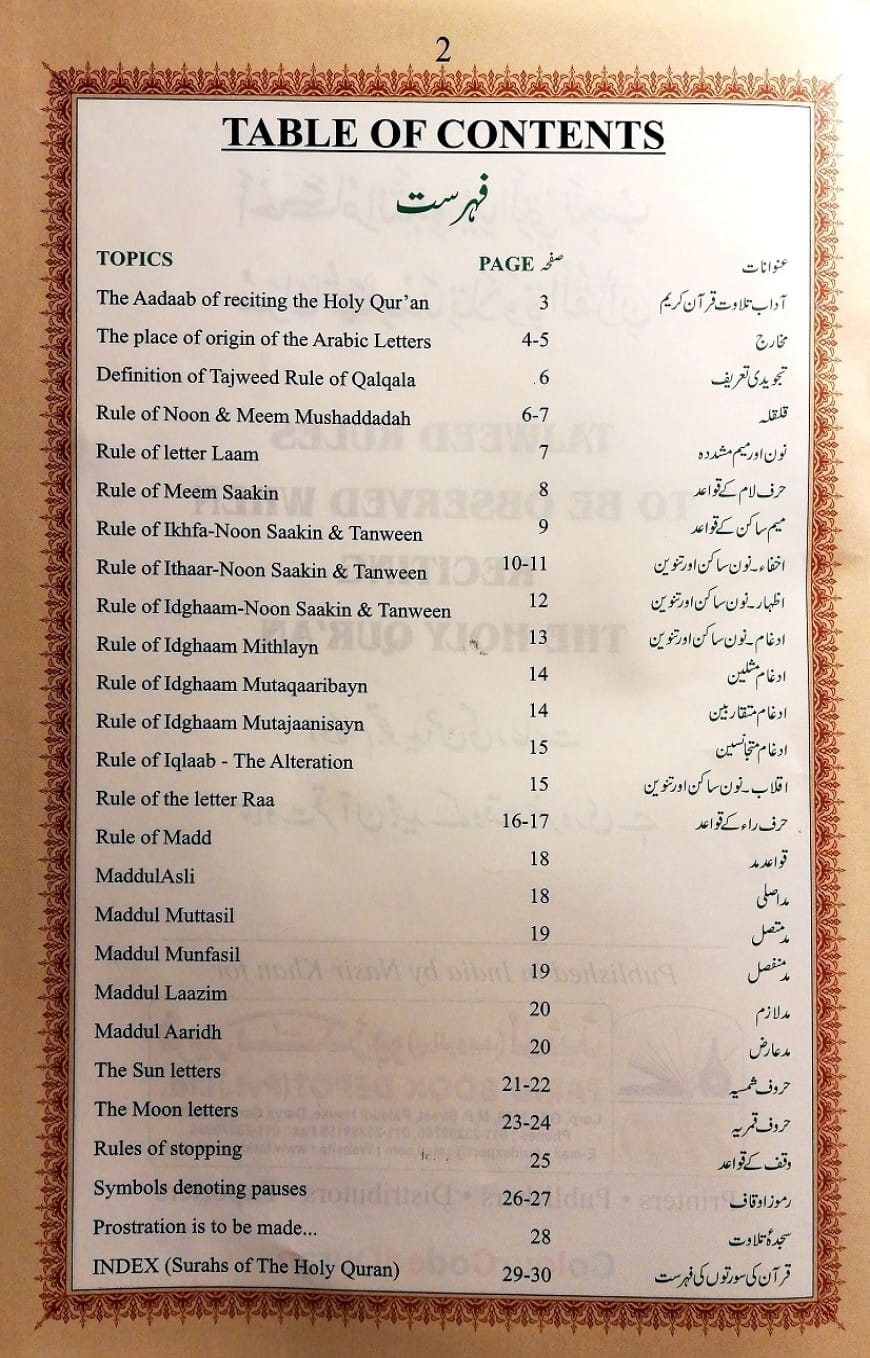 2
TABLE OF CONTENTS
فہرست
TOPICS
The Aadaab of reciting the Holy Qur’an
The place of origin of the Arabic Letters
Definition of Tajweed Rule of Qalqala
Rule of Noon & Meem Mushaddadah
Rule of letter Laam
Rule of Meem Saakin
Rule of Ikhfa-Noon Saakin & Tanween
Rule of Ithaar-Noon Saakin & Tanween
Rule of Idghaam-Noon Saakin & Tanween
Rule of Idghaam Mithlayn
Rule of Idghaam Mutaqaaribayn
Rule of Idghaam Mutajaanisayn
Rule of Iqlaab - The Alteration
Rule of the letter Raa
Rule of Madd
MaddulAsli
Maddul Muttasil
Maddul Munfasil
Maddul Laazim
Maddul Aaridh
The Sun letters
The Moon letters
Rules of stopping
Symbols denoting pauses
Prostration is to be made...
INDEX (Surahs of The Holy Quran)
PAGE صفحہ
3
4-5
6
6-7
7
8
9
10-11
12
13
14
14
15
15
16-17
18
18
19
19
20
20
21-22
23-24
25
26-27
28
29-30
عنوانات
آداب تلاوت قرآن کریم
مخارج
تجویدی تعریف
قلقلہ
نون اور میم مشددہ
حرف لام کے قواعد
میم ساکن کے قواعد
اخفاء۔نون ساکن اور تنوین
اظہار۔نون ساکن اور تنوین
ادغام۔نون ساکن اور تنوین
ادغام مثلین
ادغام متقاربین
ادغام متجانسین
اقلاب۔نون ساکن اور تنوین
حرف راء کے قواعد
قواعد مد
مد اصلی
مد متصل
مد منفصل
مد لازم
مد عارض
حروف شمسیہ
حروف قمریہ
وقف کے قواعد
رموز اوقاف
سجدۂ تلاوت
قرآن کی سورتوں کی فہرست